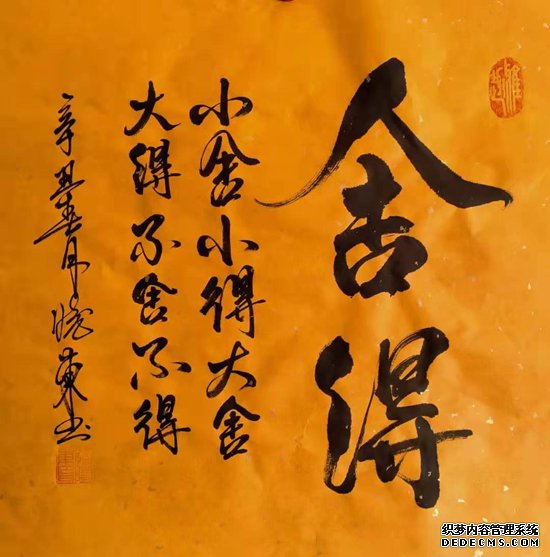 舍得
小舍小得大舍
大得不舍不得
辛丑月東书
织梦内容管理系统
DEDECMS.COM